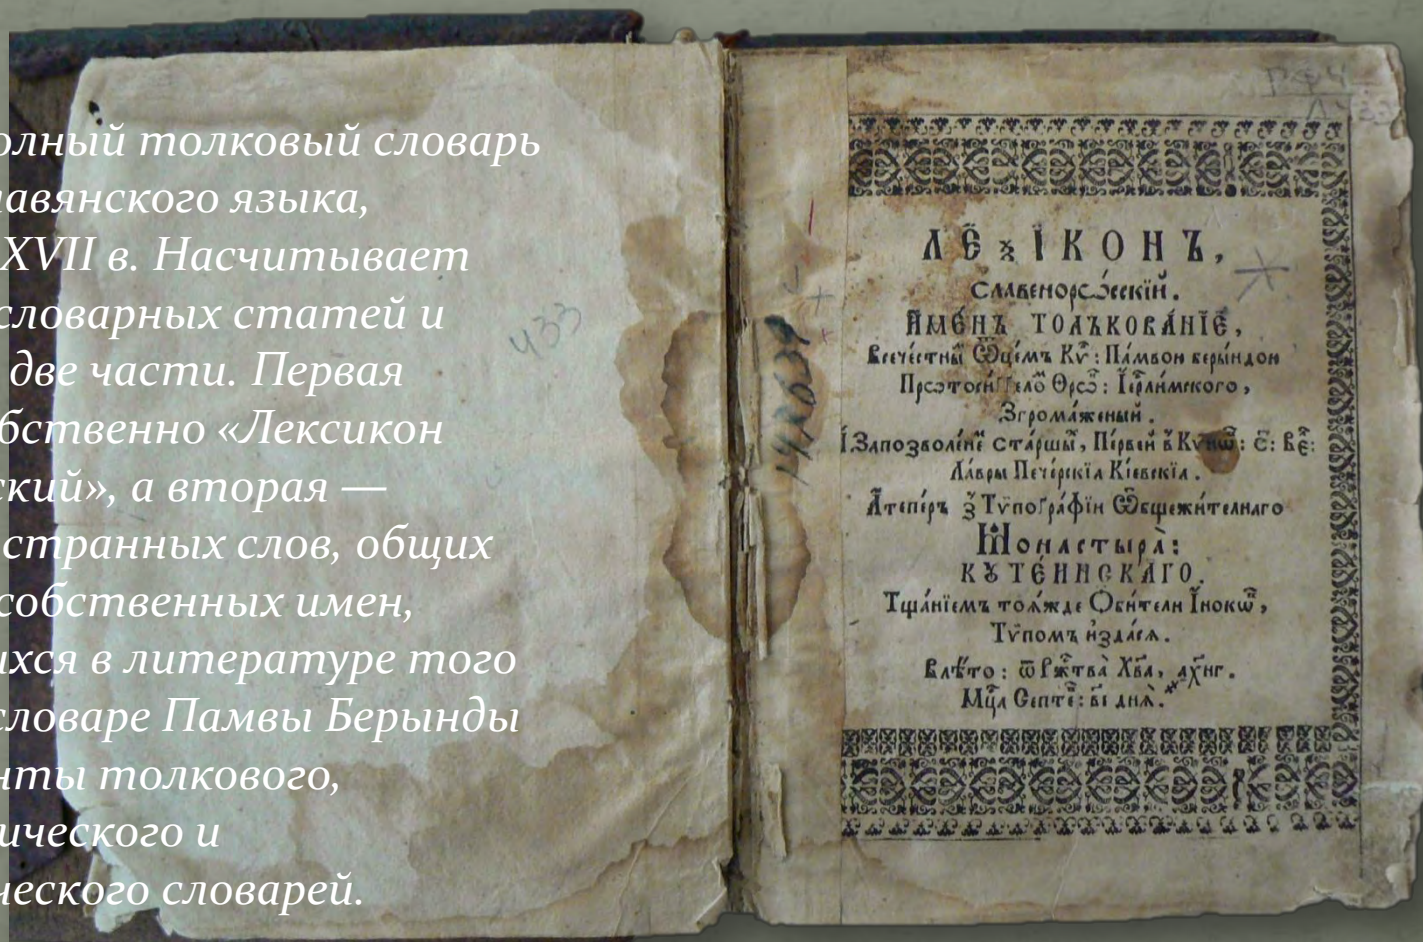 олный толковый словарь
лавянского языка,
XVII в. Насчитывает
словарных статей и
две части. Первая
бственно «Лексикон
ский», а вторая —
странных слов, общих
собственных имен,
ихся в литературе того
словаре Памвы Берынды
нты толкового,
ического и
ческого словарей.
433
ЛЕѮІКОНЪ,
славенорѡ́сскїй.
И҆МЕ́НЪ ТОЛЪКОВА́НЇЕ,
Всече́стны́ Ѿце́мъ Кѵ̈: Па́мвою беры́ндою
Згрома́женый.
Ла́вры Пече́рскїѧ Кїевскїѧ.
А҆тепе́ръ з̾ Тѵпоґра́фїи Ѡ҆бщежи́телнаго
Монастырѧ̀:
КꙊТЕ́ИНСКАГО.
Тща́нїемъ тоѧ́жде Ѻ҆би́тели І҆нокѡ̑,
Тѵ́помъ и҆зда́сѧ.
Влѣ́то: ѿ Рж҃тва̀ Хв҃а, ахнг.
Мц҃а Септе: ві днѧ̀.